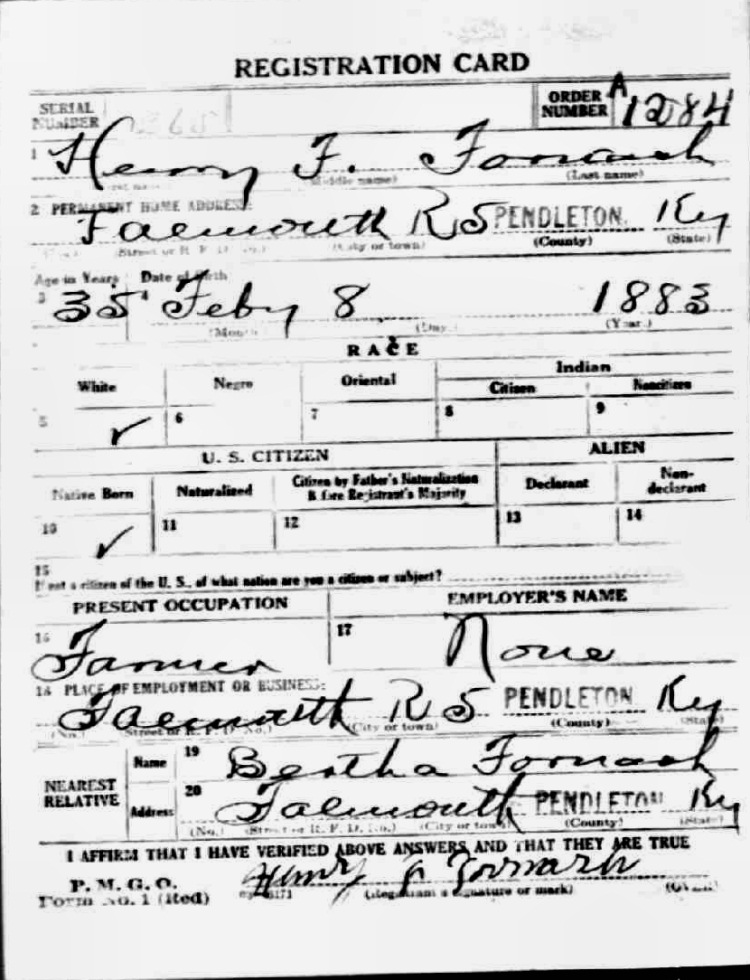 REGISTRATION CARD
SERIAL NUMBER
ORDER NUMBER A 1284
1 Henry F. Fornash
(Middle name) (Last name)
2 PERMANENT HOME ADDRESS:
Falmouth R 5 PENDLETON Ky
(Street or R. F. D. No.) (City or town) (County) (State)
Age in Years Date of Birth
3 35 4 Feby 8 1883
(Month) (Day) (Year.)
RACE
White Negro Oriental Indian
Citizen Noncitizen
5 ✓ 6 7 8 9
U. S. CITIZEN ALIEN
Native Born Naturalized Citizen by Father's Naturalization Before Registrant's Majority Declarant Non-declarant
10 ✓ 11 12 13 14
15
If not a citizen of the U. S., of what nation are you a citizen or subject?
PRESENT OCCUPATION EMPLOYER'S NAME
16 Farmer 17 None
18 PLACE OF EMPLOYMENT OR BUSINESS:
Falmouth R 5 PENDLETON Ky
(No.) (Street or R. F. D. No.) (City or town) (County) (State)
NEAREST RELATIVE
Name 19 Bertha Fornash
Address 20 Falmouth PENDLETON Ky
(No.) (Street or R. F. D. No.) (City or town) (County) (State)
I AFFIRM THAT I HAVE VERIFIED ABOVE ANSWERS AND THAT THEY ARE TRUE
P. M. G. O.
Form No. 1 (Red) Henry F Fornash
(Registrant's signature or mark) (OVER)